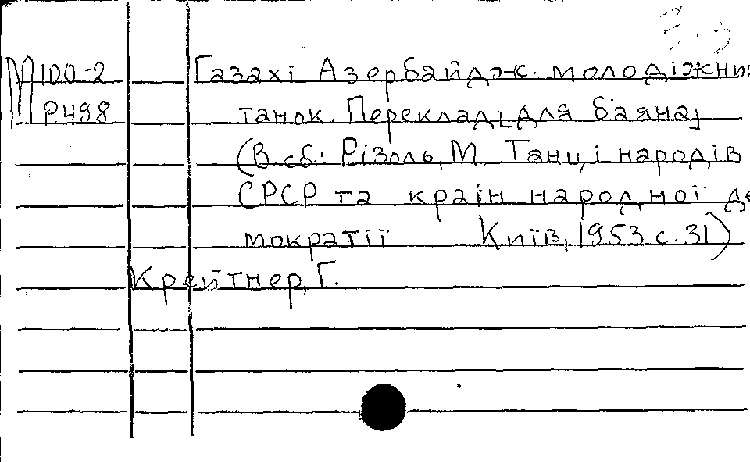 М100-2 Газахі Азербайдж. молодіжни
Р498 танок. Переклад для баяна
(В сб: Різоль, М. Танці народів
СРСР та країн народної де
мократії Київ, 1953 с. 31)
Крейтнер, Г.